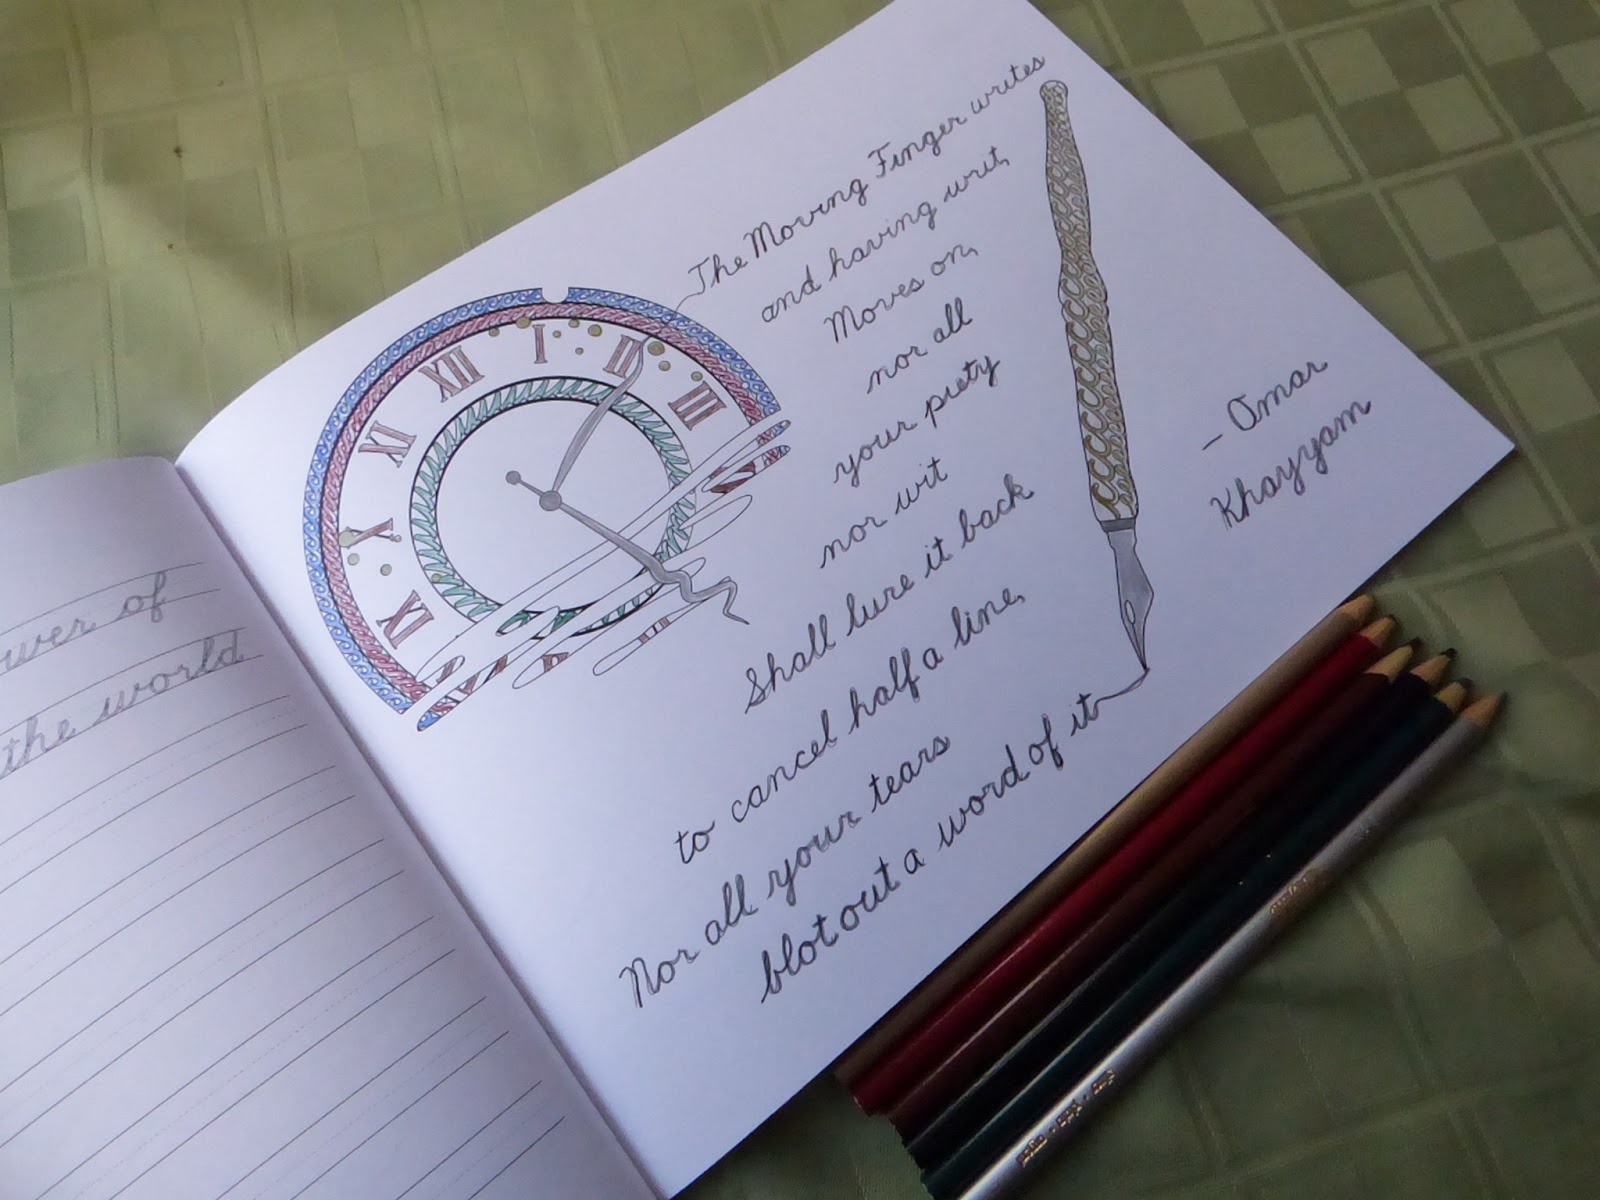 wer of
the world
IX
X
XI
XII
I
II
III
The Moving Finger writes
and having writ,
Moves on,
nor all
your piety
nor wit
Shall lure it back
to cancel half a line,
Nor all your tears
blot out a word of it
– Omar
Khayyam